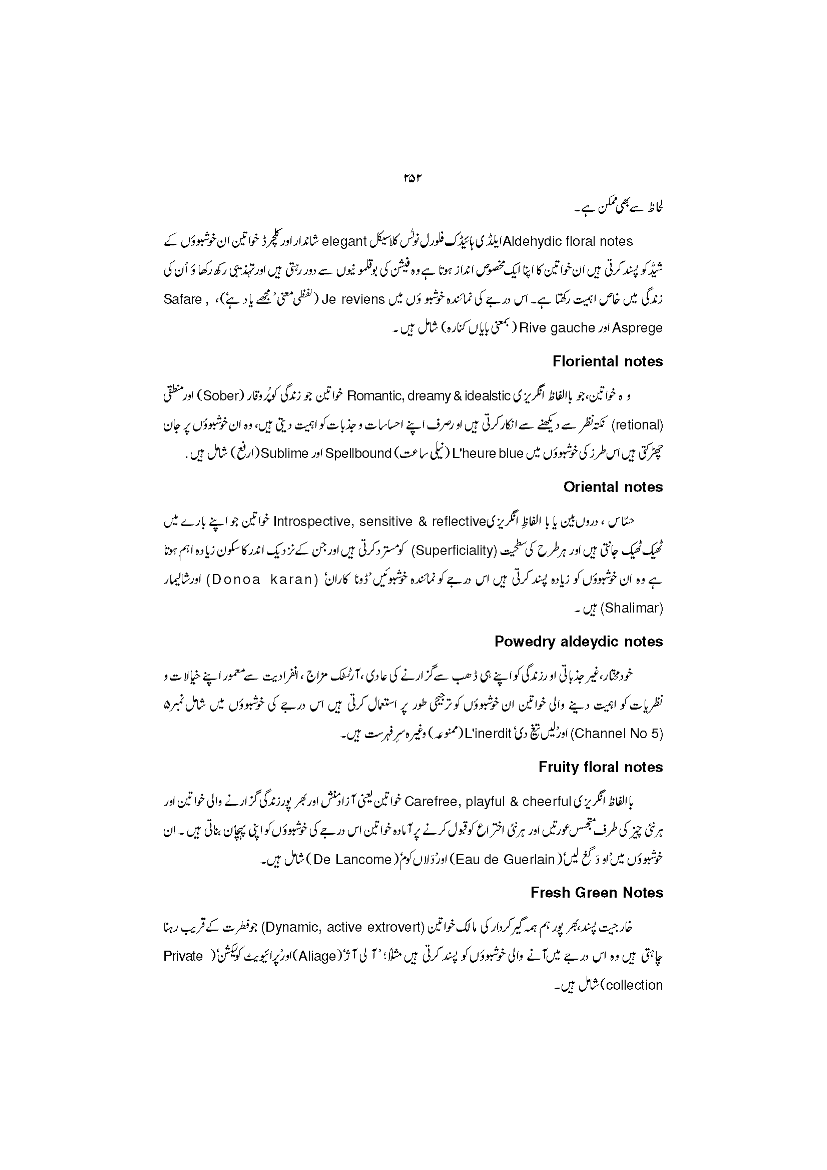 ۲۵۲
لحاظ سے بھی ممکن ہے۔
Aldehydic floral notes ایلڈی ہائیڈک فلورل نوٹس کلاسیکل elegant شاندار اور کلچرڈ خواتین ان خوشبوؤں کے
شیڈ کو پسند کرتی ہیں ان خواتین کا اپنا ایک مخصوص انداز ہوتا ہے وہ فیشن کی بوقلمونیوں سے دور رہتی ہیں اور تہذیبی رکھ رکھاؤ اُن کی
زندگی میں خاص اہمیت رکھتا ہے۔ اس درجے کی نمائندہ خوشبو ؤں میں Je reviens (لفظی معنی ’مجھے یاد ہے‘)، Safare ,
Asprege اور Rive gauche (بمعنی بایاں کنارہ) شامل ہیں ۔
Floriental notes
و ہ خواتین،جو باالفاظ انگریزی Romantic, dreamy & idealstic خواتین جو زندگی کو پُروقار (Sober) اور منطقی
(retional) نکتہ نظر سے دیکھنے سے انکار کرتی ہیں او رصرف اپنے احساسات و جذبات کو اہمیت دیتی ہیں، وہ ان خوشبوؤں پر جان
چھڑکتی ہیں اس طرز کی خوشبوؤں میں L'heure blue (نیلی ساعت) Spellbound اور Sublime (ارفع) شامل ہیں .
Oriental notes
حسّاس ، دروں بین یا با الفاظِ انگریزی Introspective, sensitive & reflective خواتین جو اپنے بارے میں
ٹھیک ٹھیک جانتی ہیں اور ہر طرح کی سطحیت (Superficiality) کو مسترد کرتی ہیں اور جن کے نزدیک اندر کا سکون زیادہ اہم ہوتا
ہے وہ ان خوشبوؤں کو زیادہ پسند کرتی ہیں اس درجے کو نمائندہ خوشبوئیں ’ڈونا کاران‘ (Donoa karan) اور شالیمار
(Shalimar) ہیں ۔
Powedry aldeydic notes
خودمختار،غیر جذباتی او رزندگی کو اپنے ہی ڈھب سے گزارنے کی عادی ،آرٹسٹک مزاج ، انفرادیت سے معمور اپنے خیالات و
نظریات کو اہمیت دینے والی خواتین ان خوشبوؤں کو ترجیحی طور پر استعمال کرتی ہیں اس درجے کی خوشبوؤں میں شامل نمبر ۵
(Channel No 5) اور’لیس تیغ دی‘ L'inerdit (ممنوعہ) وغیرہ سرِ فہرست ہیں۔
Fruity floral notes
باالفاظ انگریزی Carefree, playful & cheerful خواتین یعنی آزاد منش اور بھر پور زندگی گزارنے والی خواتین اور
ہر نئی چیز کی طرف متجسس عورتیں اور ہر نئی اختراع کو قبول کرنے پر آمادہ خواتین اس درجے کی خوشبوؤں کو اپنی پہچان بناتی ہیں ۔ ان
خوشبوؤں میں ’او دَ گِغ لیں‘ (Eau de Guerlain) اور ’دَلاں کوم‘ (De Lancome) شامل ہیں۔
Fresh Green Notes
خارجیت پسند،بھر پور ہم ہمہ گیر کردار کی مالک خواتین (Dynamic, active extrovert) جو فطرت کے قریب رہنا
چاہتی ہیں وہ اس درجے میں آنے والی خوشبوؤں کو پسند کرتی ہیں مثلاً: ’آ لی آژ‘ (Aliage) اور ’پرائیویٹ کولیکشن‘ ( Private
collection) شامل ہیں۔